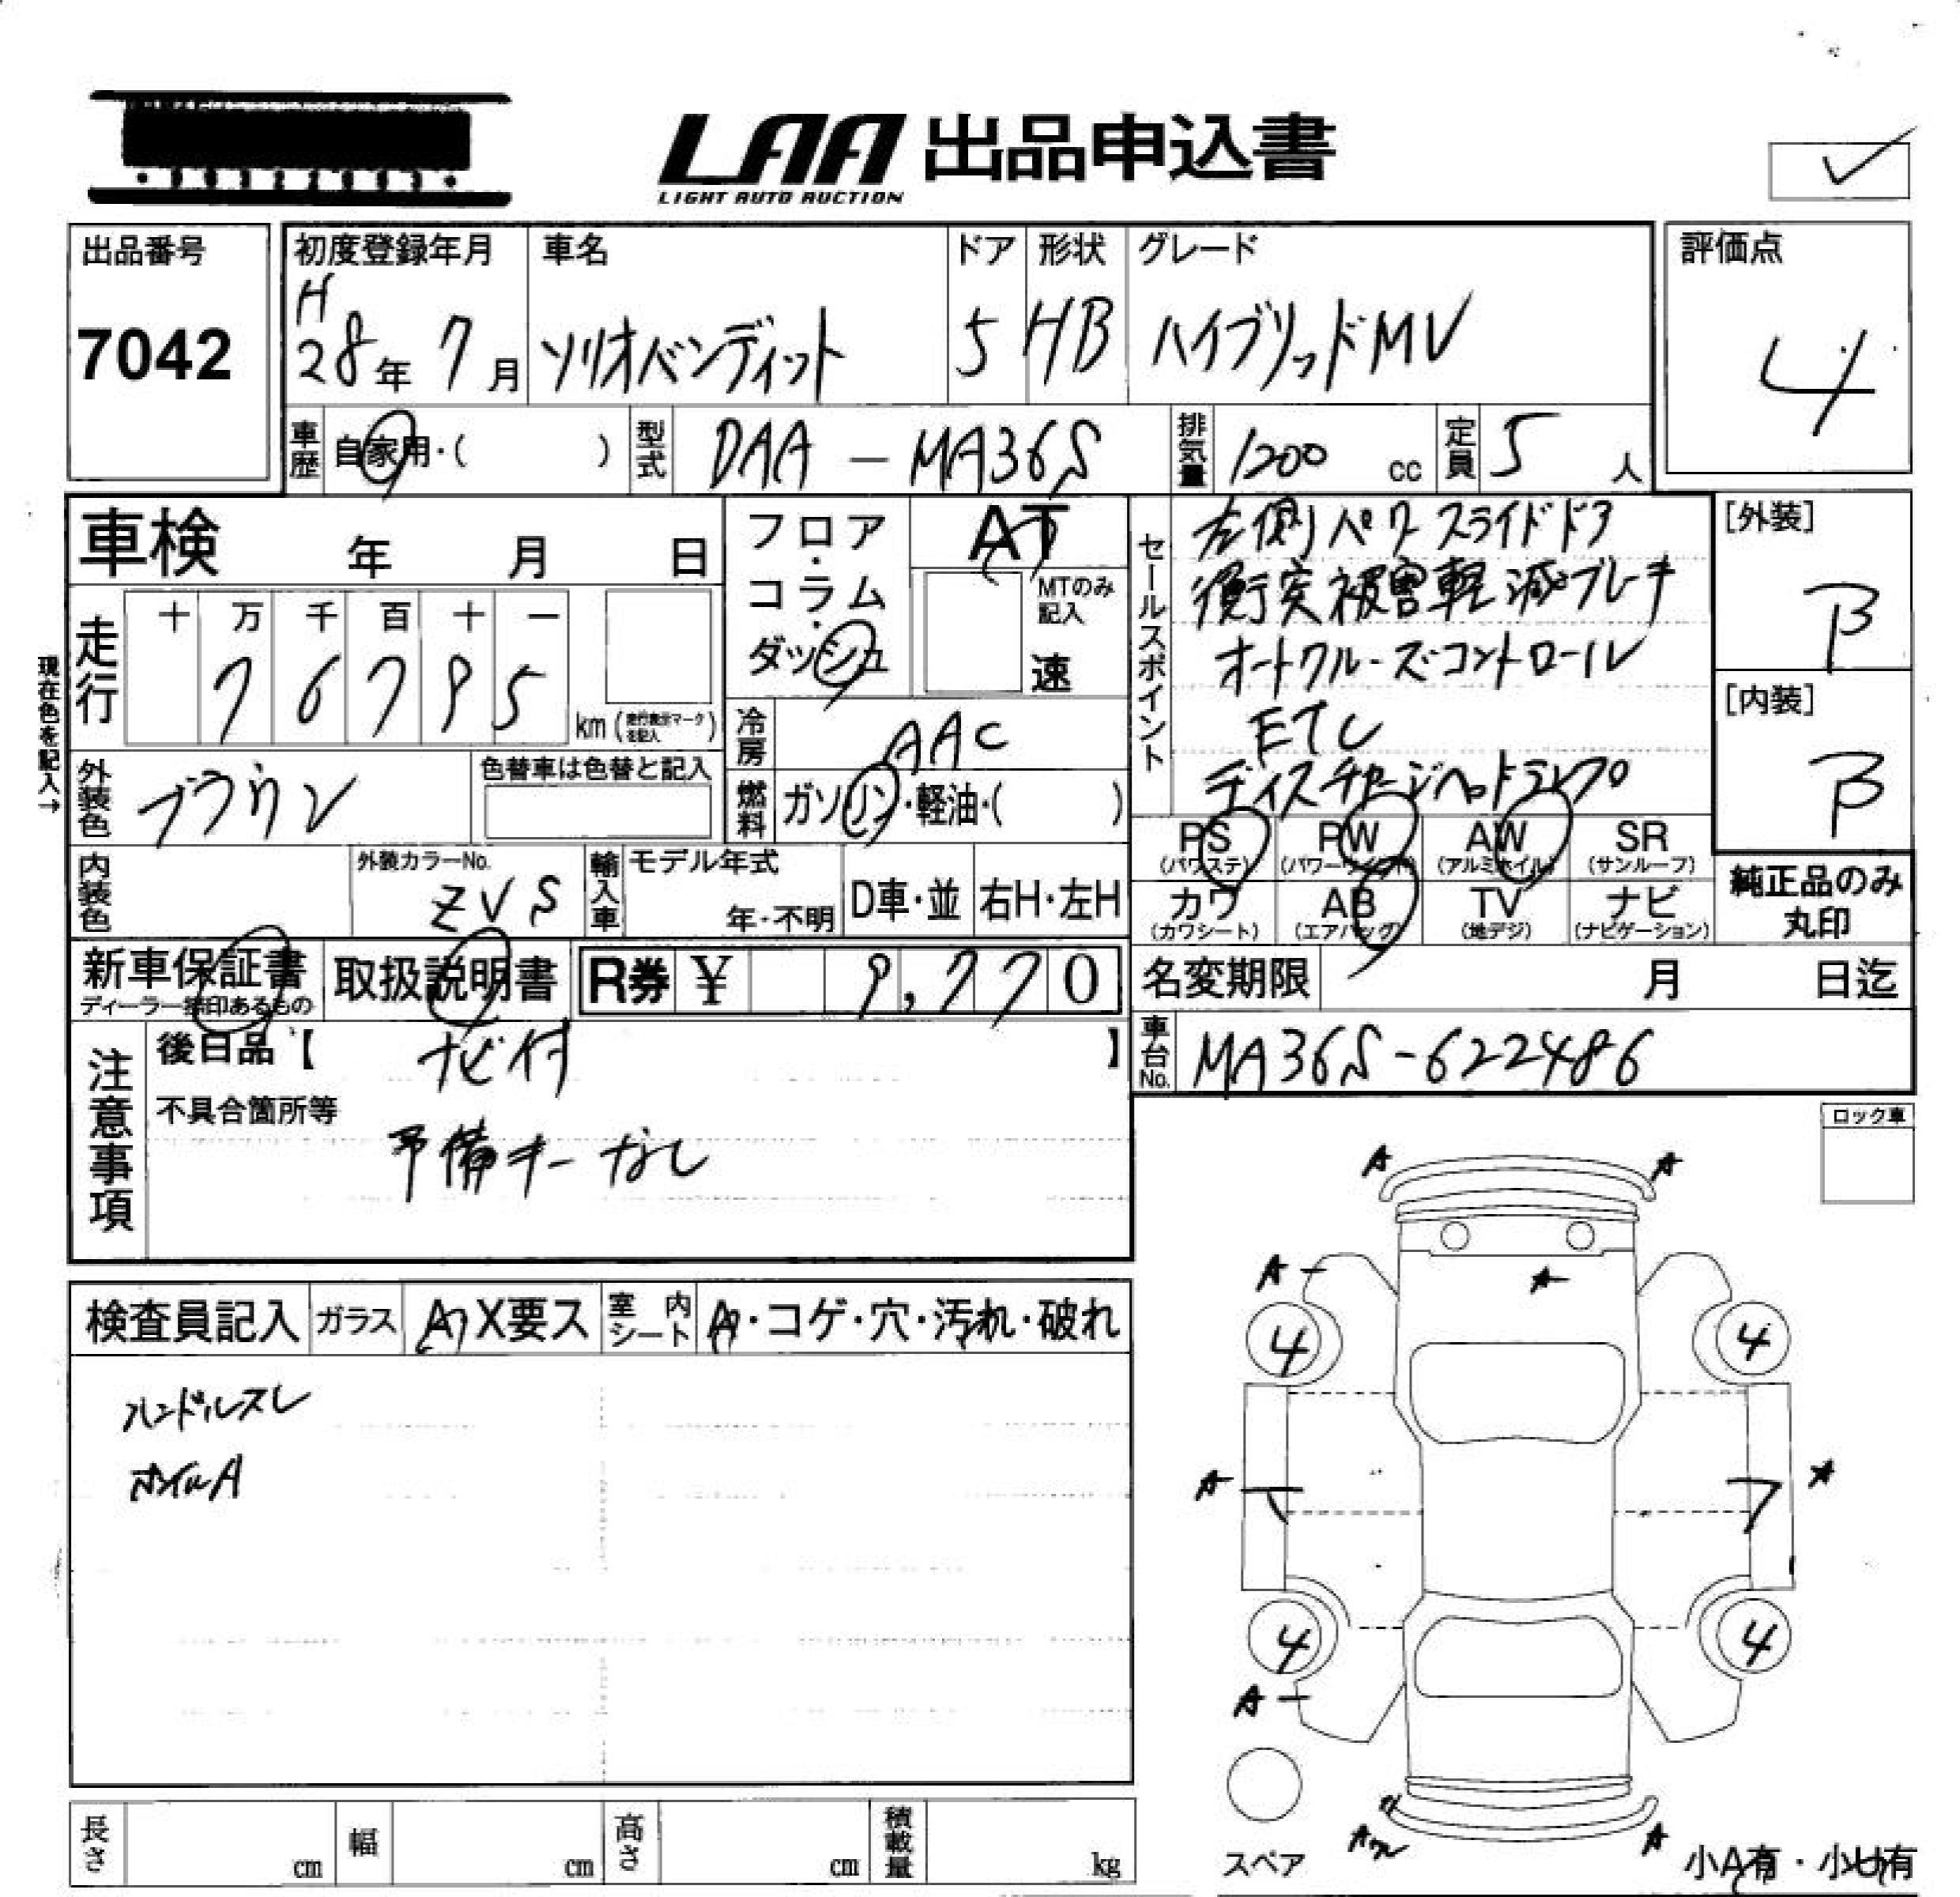 LAA 出品申込書
LIGHT AUTO AUCTION
出品番号
7042
初度登録年月 車名 ドア 形状 グレード
H
28年 7月 ソリオバンディット 5 HB ハイブリッドMV
評価点
4
車歴 自家用・( ) 型式 DAA - MA36S 排気量 1200 cc 定員 5 人
車検 年 月 日
フロア・コラム・ダッシュ
AT
MTのみ記入
速
現在色を記入→
走行 十 万 千 百 十 一
7 6 7 9 5 km (走行表示マークを記入)
冷房 AAC
外装色 ブラウン 色替車は色替と記入
燃料 ガソリン・軽油・( )
セールスポイント
左側パワースライドドア
衝突被害軽減ブレーキ
オートクルーズコントロール
ETC
ディスチャージヘッドランプ
[外装]
B
[内装]
B
PS (パワステ) PW (パワーウインドウ) AW (アルミホイル) SR (サンルーフ)
カワ (カワシート) AB (エアバッグ) TV (地デジ) ナビ (ナビゲーション)
純正品のみ
丸印
内装色 外装カラーNo. ZVS 輸入車 モデル年式 年・不明 D車・並 右H・左H
新車保証書 取扱説明書 R券 ¥ 9,770
ディーラー捺印あるもの
名変期限 月 日迄
車台No. MA36S-622486
注意事項
後日品【 ナビ付 】
不具合箇所等
予備キーなし
ロック車
検査員記入 ガラス A・X要ス 室内シート A・コゲ・穴・汚れ・破れ
ハンドルスレ
ホイルA
A A
A
A
4 4
A A
4 4
A
スペア
A A
小A有・小U有
長さ cm 幅 cm 高さ cm 積載量 kg